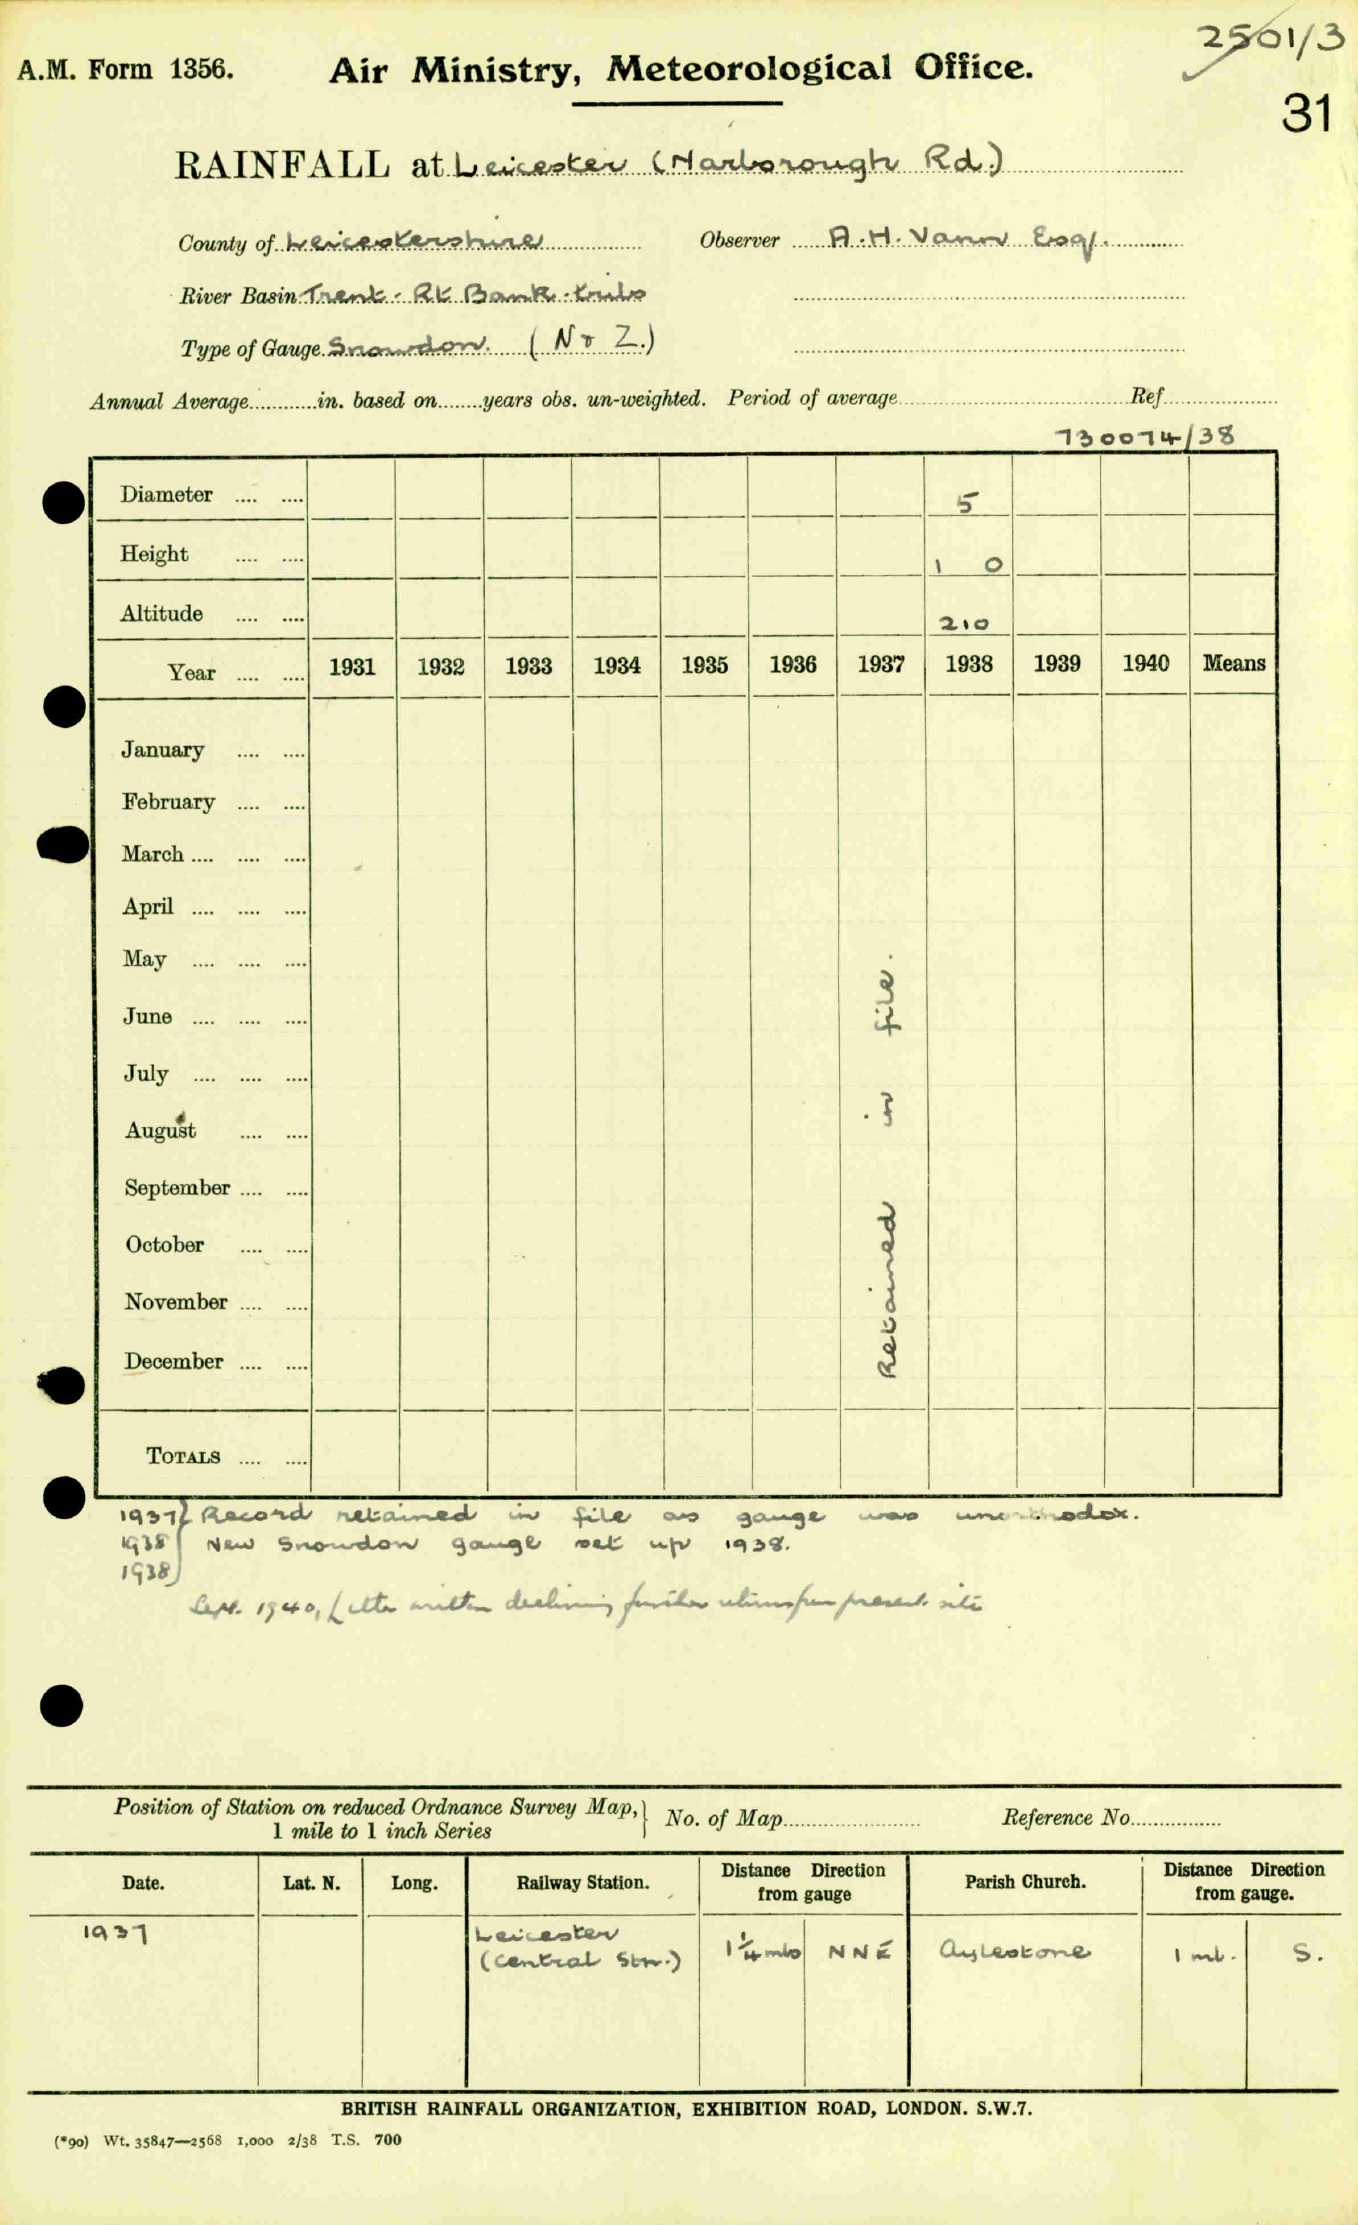 2501/3
A.M. Form 1356. Air Ministry, Meteorological Office.
31
RAINFALL at Leicester (Narborough Rd.)
County of Leicestershire Observer A.H. Vann Esq.
River Basin Trent - Rt Bank tribs
Type of Gauge Snowdon. (No Z.)
Annual Average............in. based on........years obs. un-weighted. Period of average Ref
730074/38
Diameter .... .... 5
Height .... .... 1 0
Altitude .... .... 210
Year .... .... 1931 1932 1933 1934 1935 1936 1937 1938 1939 1940 Means
January .... ....
February .... ....
March .... .... ....
April .... .... ....
May .... .... ....
June .... .... ....
July .... .... ....
August .... ....
September .... ....
October .... ....
November .... ....
December .... ....
Retained in file.
TOTALS .... ....
1937} Record retained in file as gauge was unorthodox.
1938 New Snowdon gauge set up 1938.
1938
Sept. 1940, Letter written declining further returns from present site
Position of Station on reduced Ordnance Survey Map,} No. of Map Reference No.
1 mile to 1 inch Series
Date. Lat. N. Long. Railway Station. Distance Direction from gauge Parish Church. Distance Direction from gauge.
1937 Leicester (Central Stn.) 1¼ mls NNE Aylestone 1 ml. S.
BRITISH RAINFALL ORGANIZATION, EXHIBITION ROAD, LONDON. S.W.7.
(*90) Wt. 35847—2568 1,000 2/38 T.S. 700